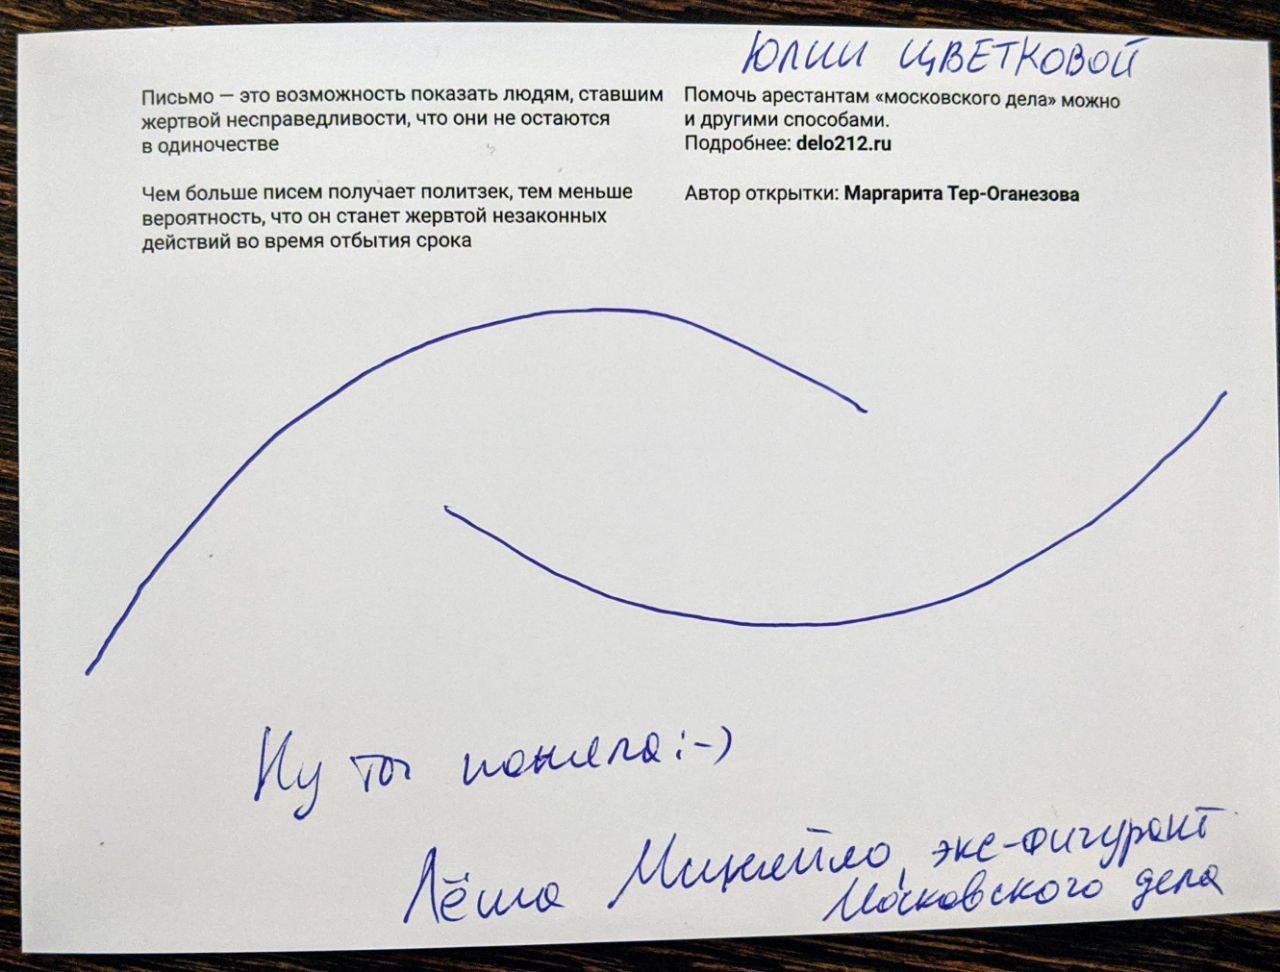 ЮЛИИ ЦВЕТКОВОЙ
Письмо — это возможность показать людям, ставшим
жертвой несправедливости, что они не остаются
в одиночестве
Чем больше писем получает политзек, тем меньше
вероятность, что он станет жервтой незаконных
действий во время отбытия срока
Помочь арестантам «московского дела» можно
и другими способами.
Подробнее: delo212.ru
Автор открытки: Маргарита Тер-Оганезова
Ну ты поняла :-)
Лёша Миняйло, экс-фигурант
Московского дела